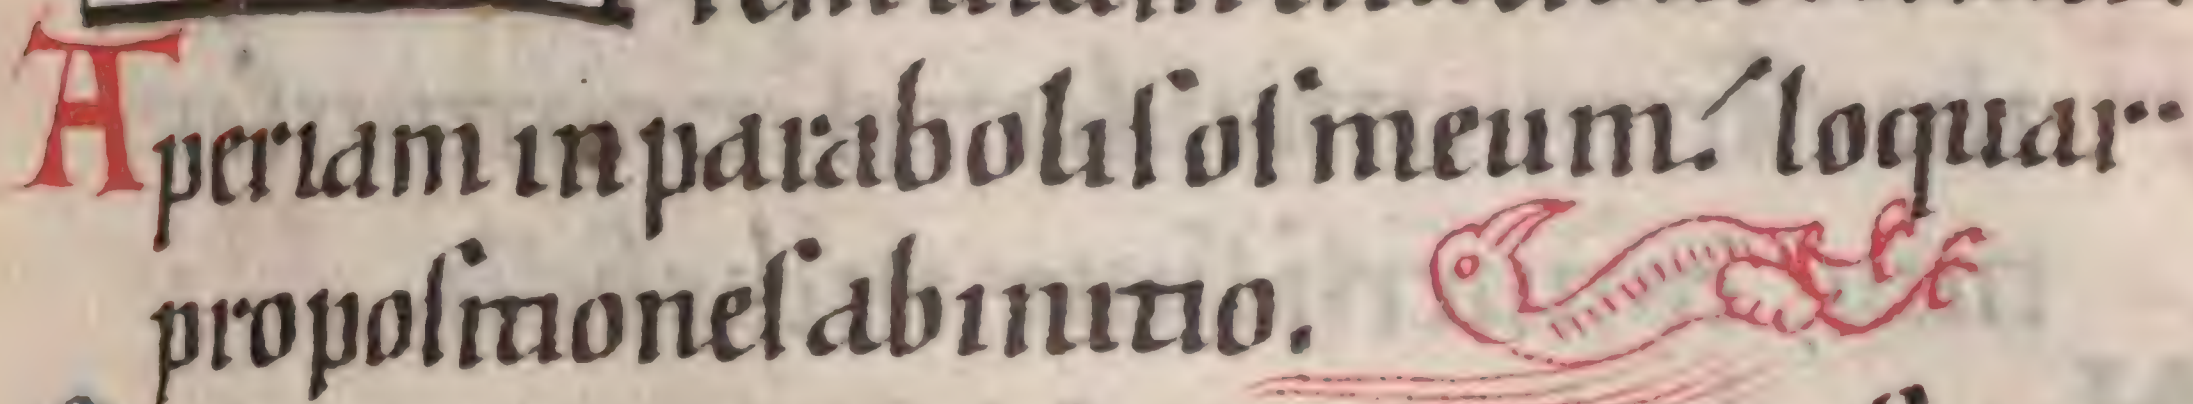 Aperiam in parabolis os meum. loquar
propositiones ab initio.